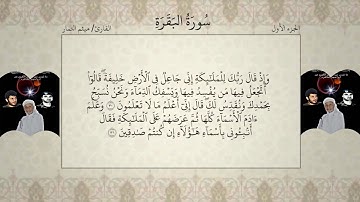 الجزء الأول
سُورَةُ البَقَرَةِ
القارئ/ ميثم التمار
وَإِذْ قَالَ رَبُّكَ لِلْمَلَٰٓئِكَةِ إِنِّي جَاعِلٌ فِي ٱلْأَرْضِ خَلِيفَةًۖ قَالُوٓا۟
أَتَجْعَلُ فِيهَا مَن يُفْسِدُ فِيهَا وَيَسْفِكُ ٱلدِّمَآءَ وَنَحْنُ نُسَبِّحُ
بِحَمْدِكَ وَنُقَدِّسُ لَكَۖ قَالَ إِنِّيٓ أَعْلَمُ مَا لَا تَعْلَمُونَ ۝ وَعَلَّمَ
ءَادَمَ ٱلْأَسْمَآءَ كُلَّهَا ثُمَّ عَرَضَهُمْ عَلَى ٱلْمَلَٰٓئِكَةِ فَقَالَ
أَنۢبِـُٔونِي بِأَسْمَآءِ هَٰٓؤُلَآءِ إِن كُنتُمْ صَٰدِقِينَ ۝